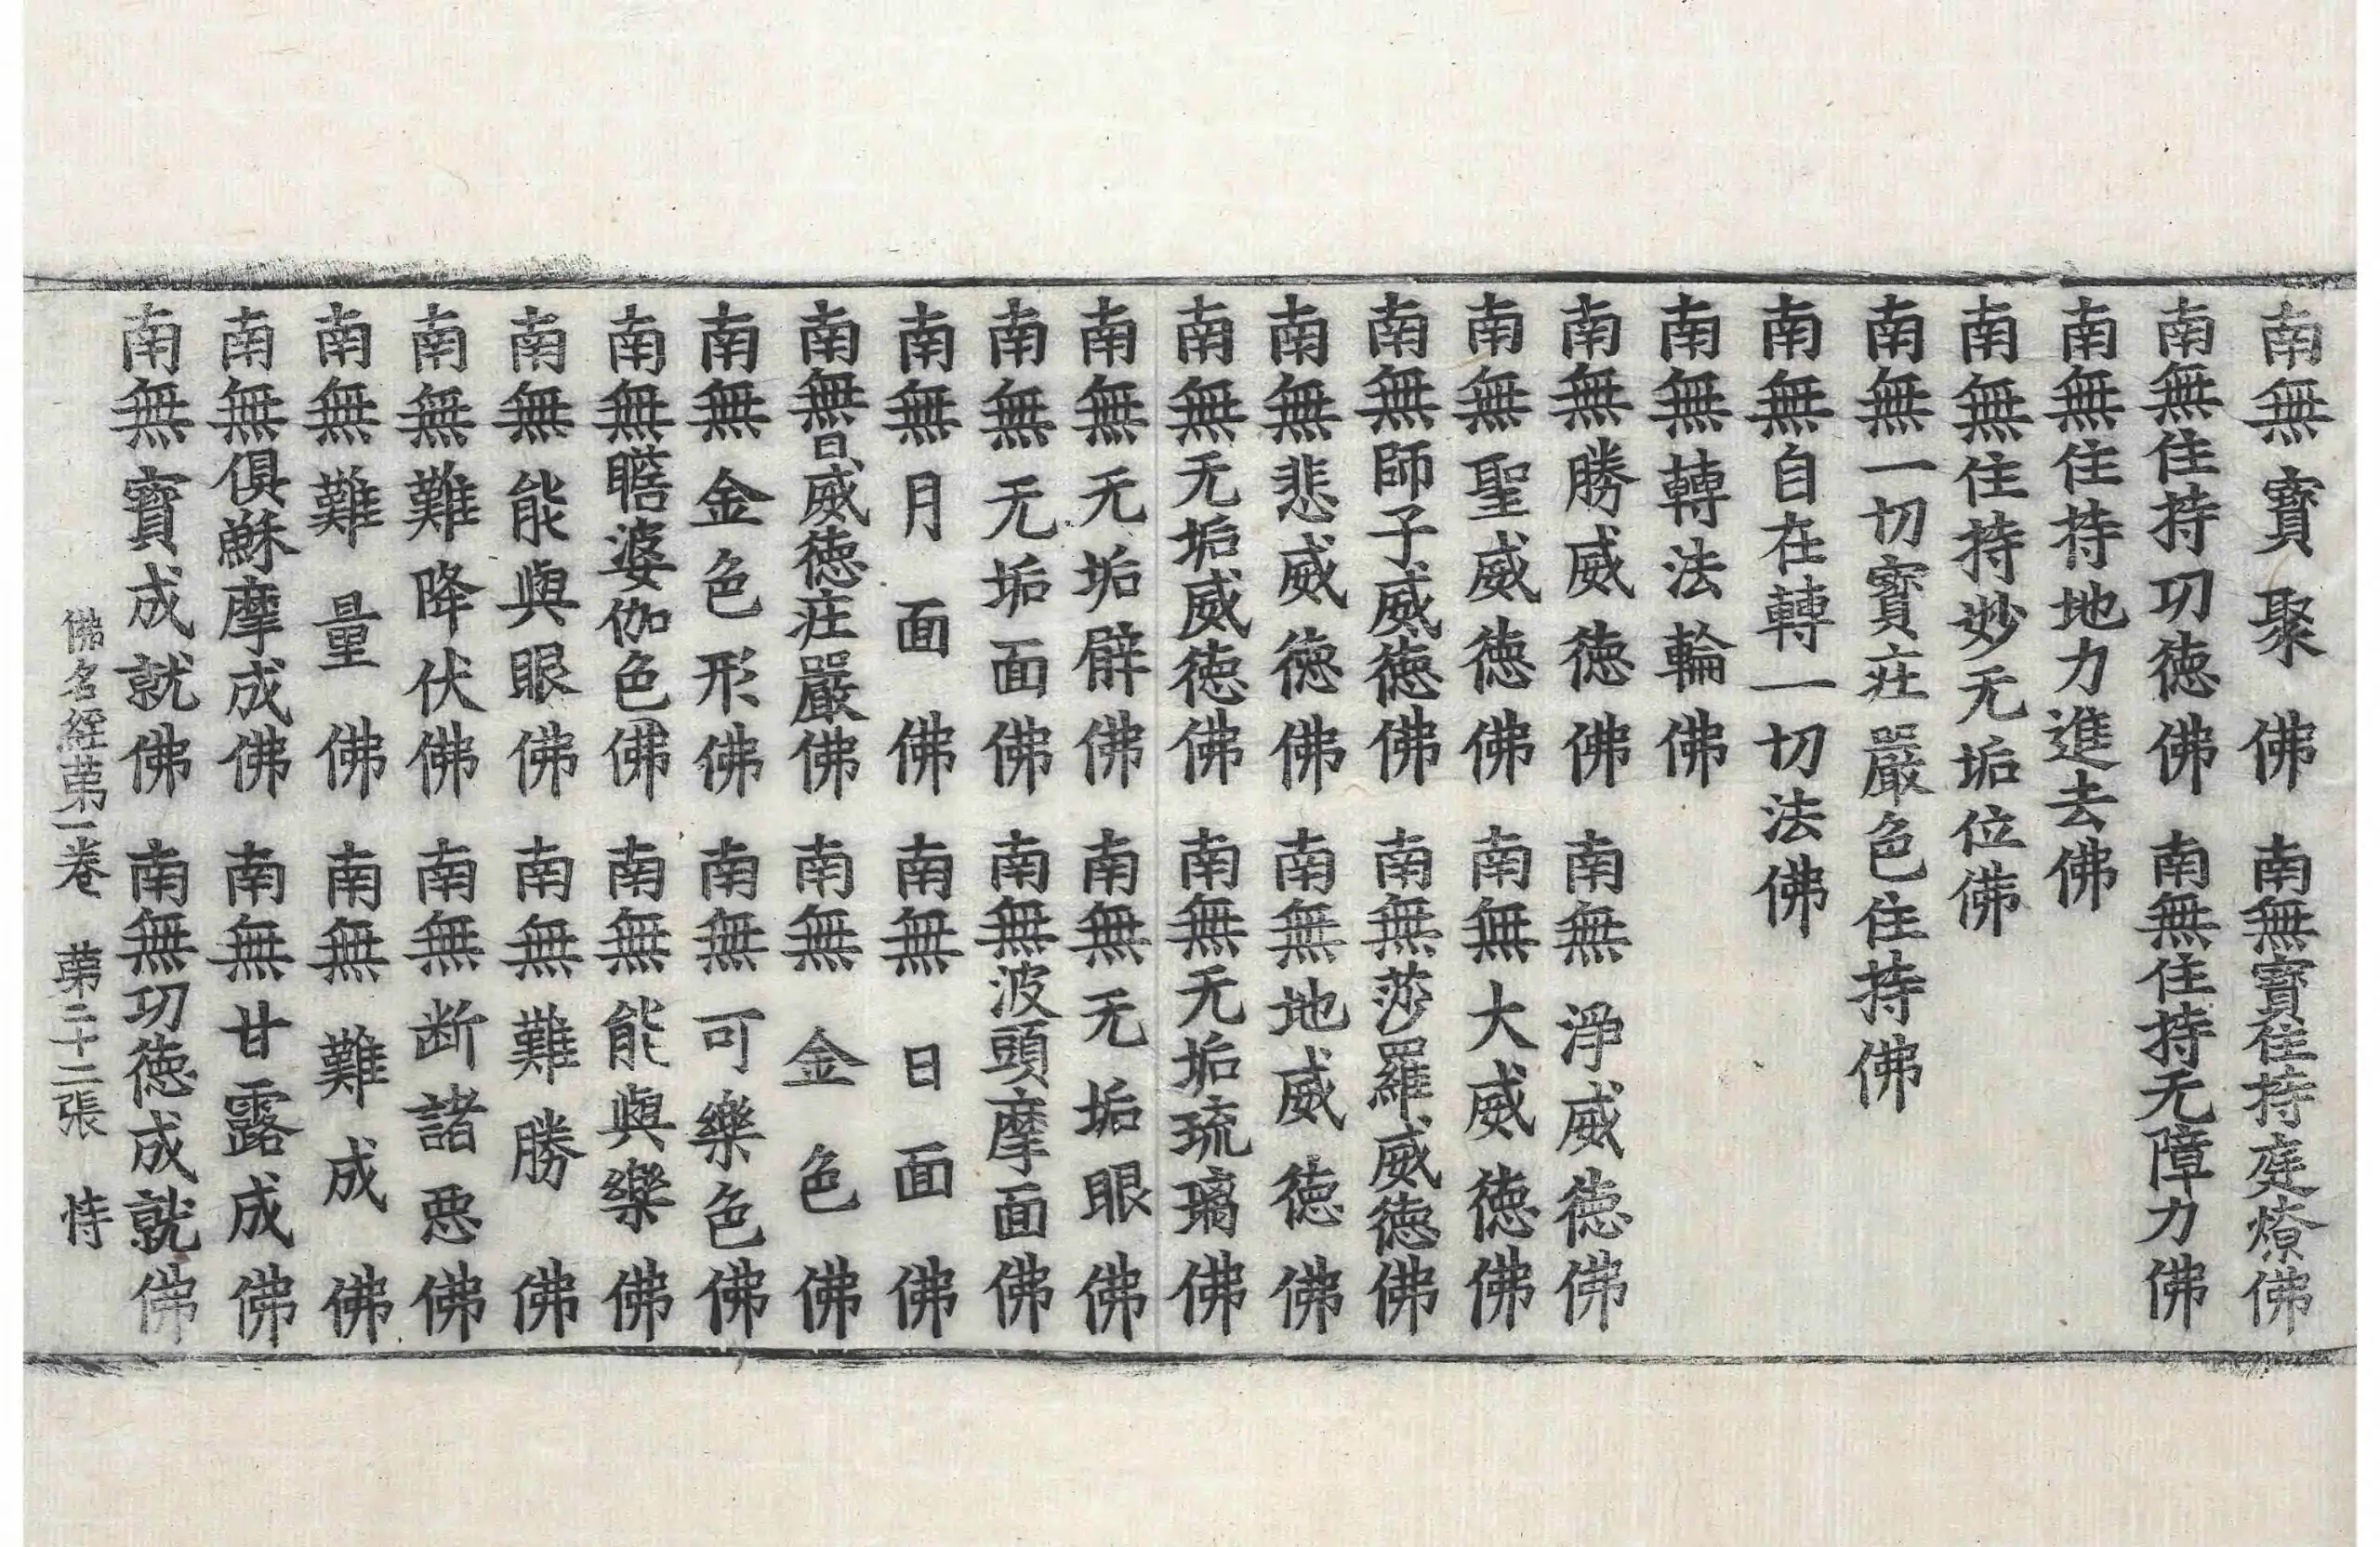 南無寶聚佛 南無寶住持庭燎佛
南無住持功德佛 南無住持无障力佛
南無住持地力進去佛
南無住持妙无垢位佛
南無一切寶莊嚴色住持佛
南無自在轉一切法佛
南無轉法輪佛
南無勝威德佛 南無淨威德佛
南無聖威德佛 南無大威德佛
南無師子威德佛 南無莎羅威德佛
南無悲威德佛 南無地威德佛
南無无垢威德佛 南無无垢琉璃佛
南無无垢辟佛 南無无垢眼佛
南無无垢面佛 南無波頭摩面佛
南無月面佛 南無日面佛
南無日威德莊嚴佛 南無金色佛
南無金色形佛 南無可樂色佛
南無瞻婆伽色佛 南無能與樂佛
南無能與眼佛 南無難勝佛
南無難降伏佛 南無断諸惡佛
南無難量佛 南無難成佛
南無俱穌摩成佛 南無甘露成佛
南無寶成就佛 南無功德成就佛
佛名經苐一卷 苐二十二張 恃